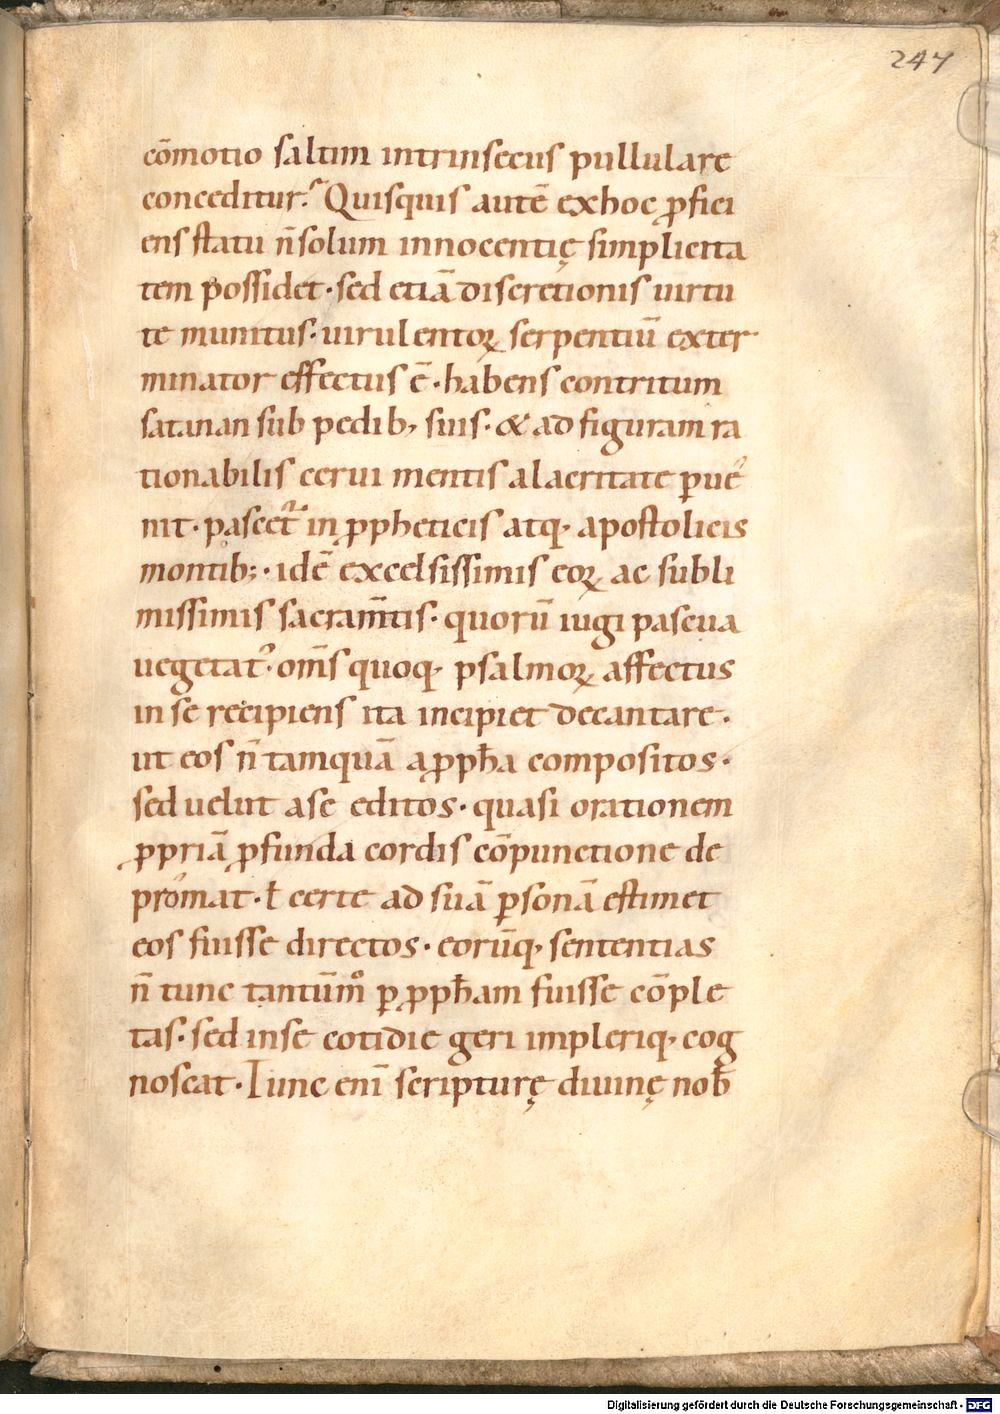 247
cōmotio saltim intrinsecus pullulare
conceditur. Quisquis autē exhoc ꝓfici
ens statu n̄ solum innocentię simplicita
tem possidet · sed etiā discretionis uirtu
te munitus · uirulentoꝝ serpentiū exter
minator effectus ē · habens contritum
satanan sub pedib, suis · & ad figuram ra
tionabilis cerui mentis alacritate ꝑue
nit · pascet in ꝓpheticis atq, apostolicis
montib; · idē excelsissimis eoꝝ ac subli
missimis sacram̄tis · quorū iugi pascua
uegetat · om̄s quoq, psalmoꝝ affectus
in se recipiens ita incipiet decantare ·
ut eos n̄ tamquā a ꝓph̄a compositos ·
sed uelut a se editos · quasi orationem
ꝓpriā ꝓfunda cordis cōpunctione de
promat · ł certe ad suā ꝑsonā estimet
eos fuisse directos · eorūq, sententias
n̄ tunc tantūm̊ ꝑ ꝓph̄am fuisse cōple
tas · sed in se cotidie geri implerīq, cog
noscat · Tunc enī scripturę diuinę nob̄
Digitalisierung gefördert durch die Deutsche Forschungsgemeinschaft - DFG